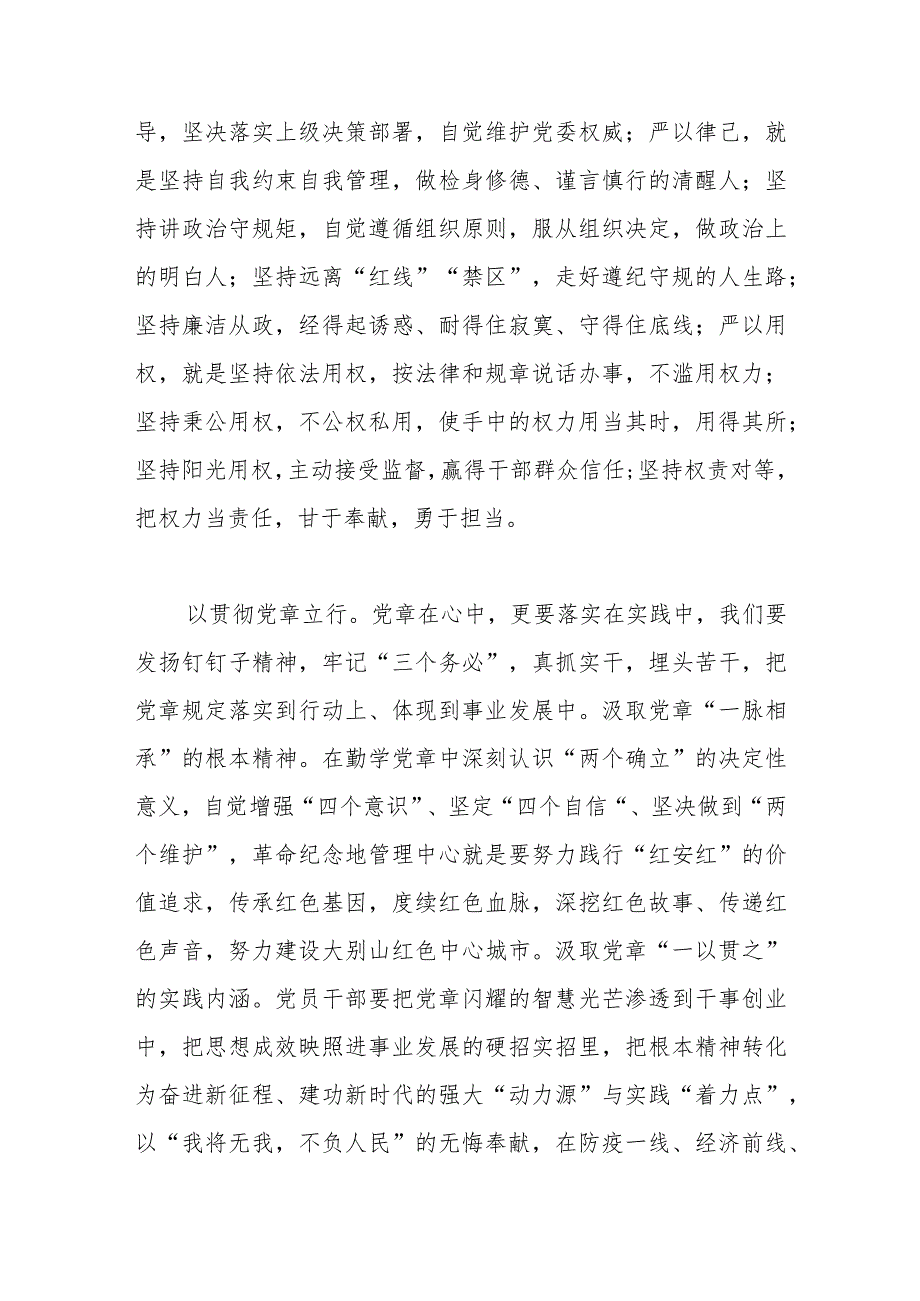 导，坚决落实上级决策部署，自觉维护党委权威；严以律己，就
是坚持自我约束自我管理，做检身修德、谨言慎行的清醒人；坚
持讲政治守规矩，自觉遵循组织原则，服从组织决定，做政治上
的明白人；坚持远离“红线”“禁区”，走好遵纪守规的人生路；
坚持廉洁从政，经得起诱惑、耐得住寂寞、守得住底线；严以用
权，就是坚持依法用权，按法律和规章说话办事，不滥用权力；
坚持秉公用权，不公权私用，使手中的权力用当其时，用得其所；
坚持阳光用权，主动接受监督，赢得干部群众信任；坚持权责对等，
把权力当责任，甘于奉献，勇于担当。
以贯彻党章立行。党章在心中，更要落实在实践中，我们要
发扬钉钉子精神，牢记“三个务必”，真抓实干，埋头苦干，把
党章规定落实到行动上、体现到事业发展中。汲取党章“一脉相
承”的根本精神。在勤学党章中深刻认识“两个确立”的决定性
意义，自觉增强“四个意识”、坚定“四个自信“、坚决做到“两
个维护”，革命纪念地管理中心就是要努力践行“红安红”的价
值追求，传承红色基因，赓续红色血脉，深挖红色故事、传递红
色声音，努力建设大别山红色中心城市。汲取党章“一以贯之”
的实践内涵。党员干部要把党章闪耀的智慧光芒渗透到干事创业
中，把思想成效映照进事业发展的硬招实招里，把根本精神转化
为奋进新征程、建功新时代的强大“动力源”与实践“着力点”，
以“我将无我，不负人民”的无悔奉献，在防疫一线、经济前线、